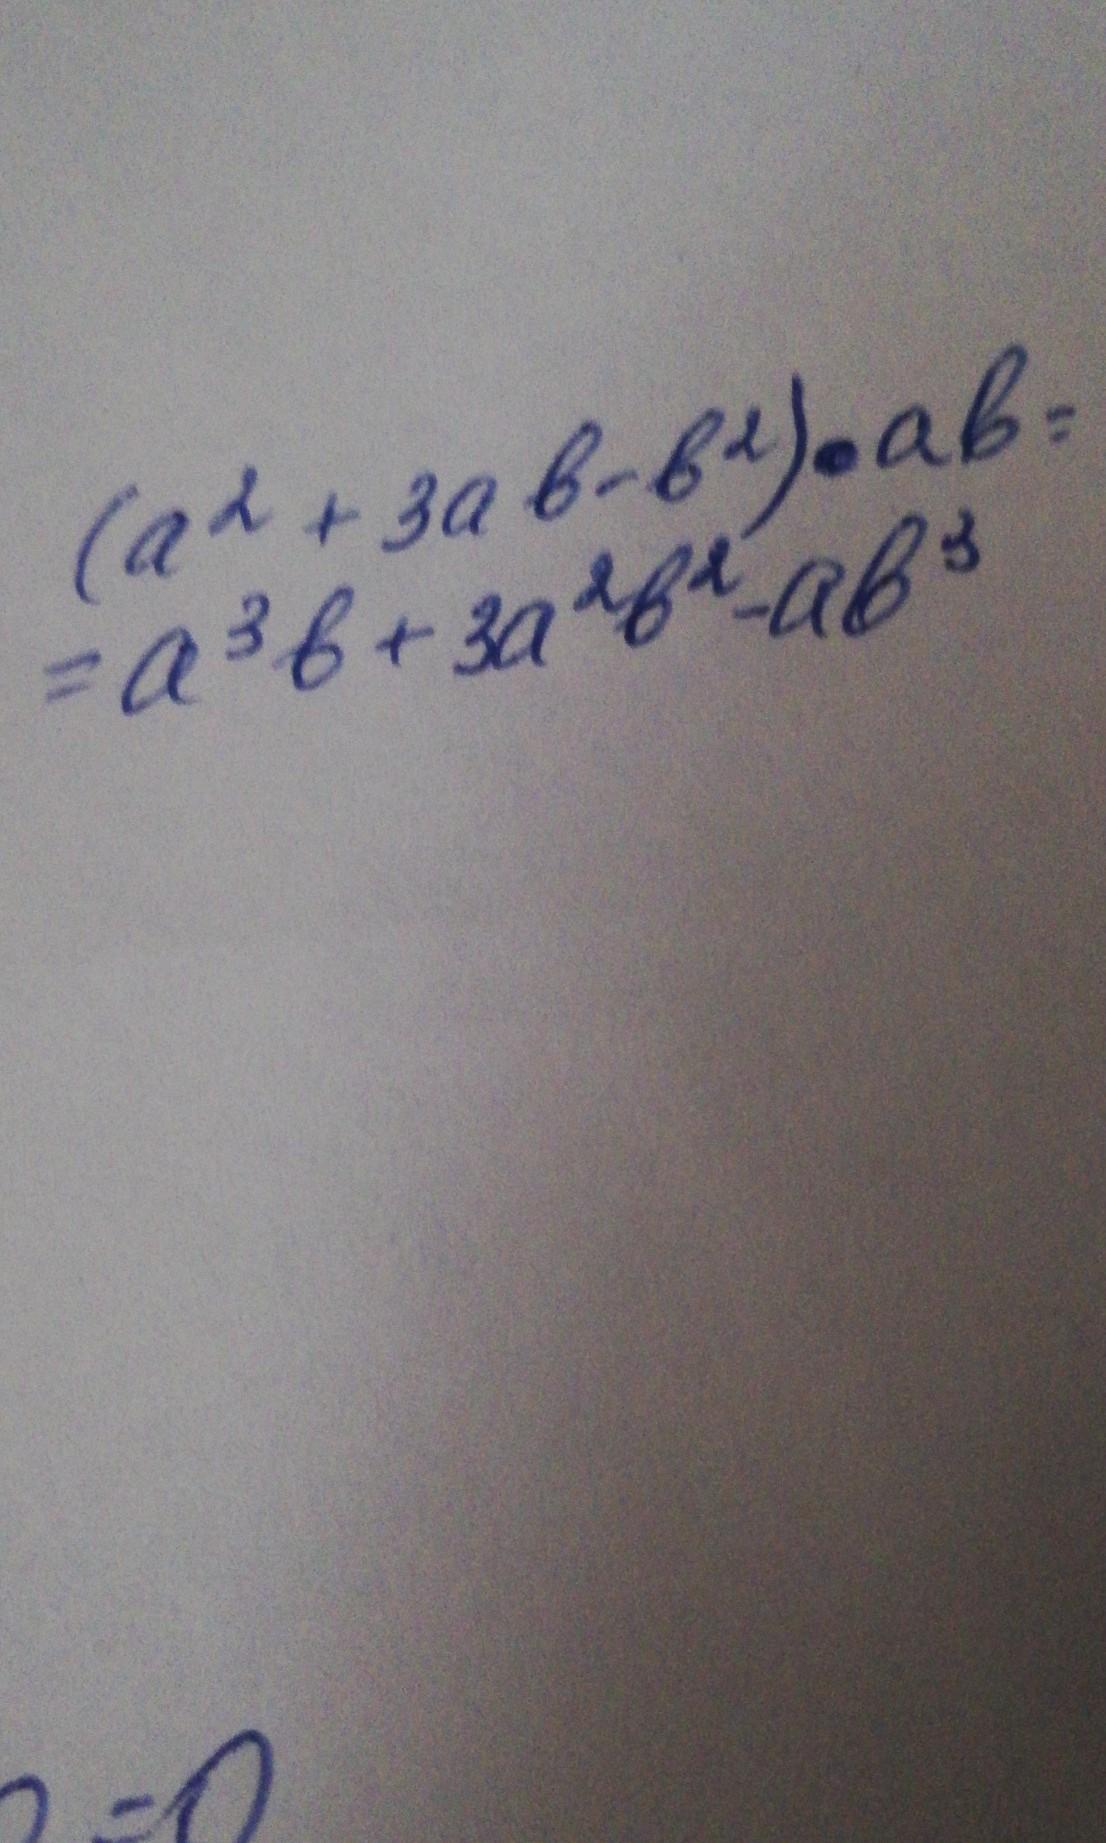 (a² + 3ab - b²) • ab =
= a³b + 3a²b² - ab³